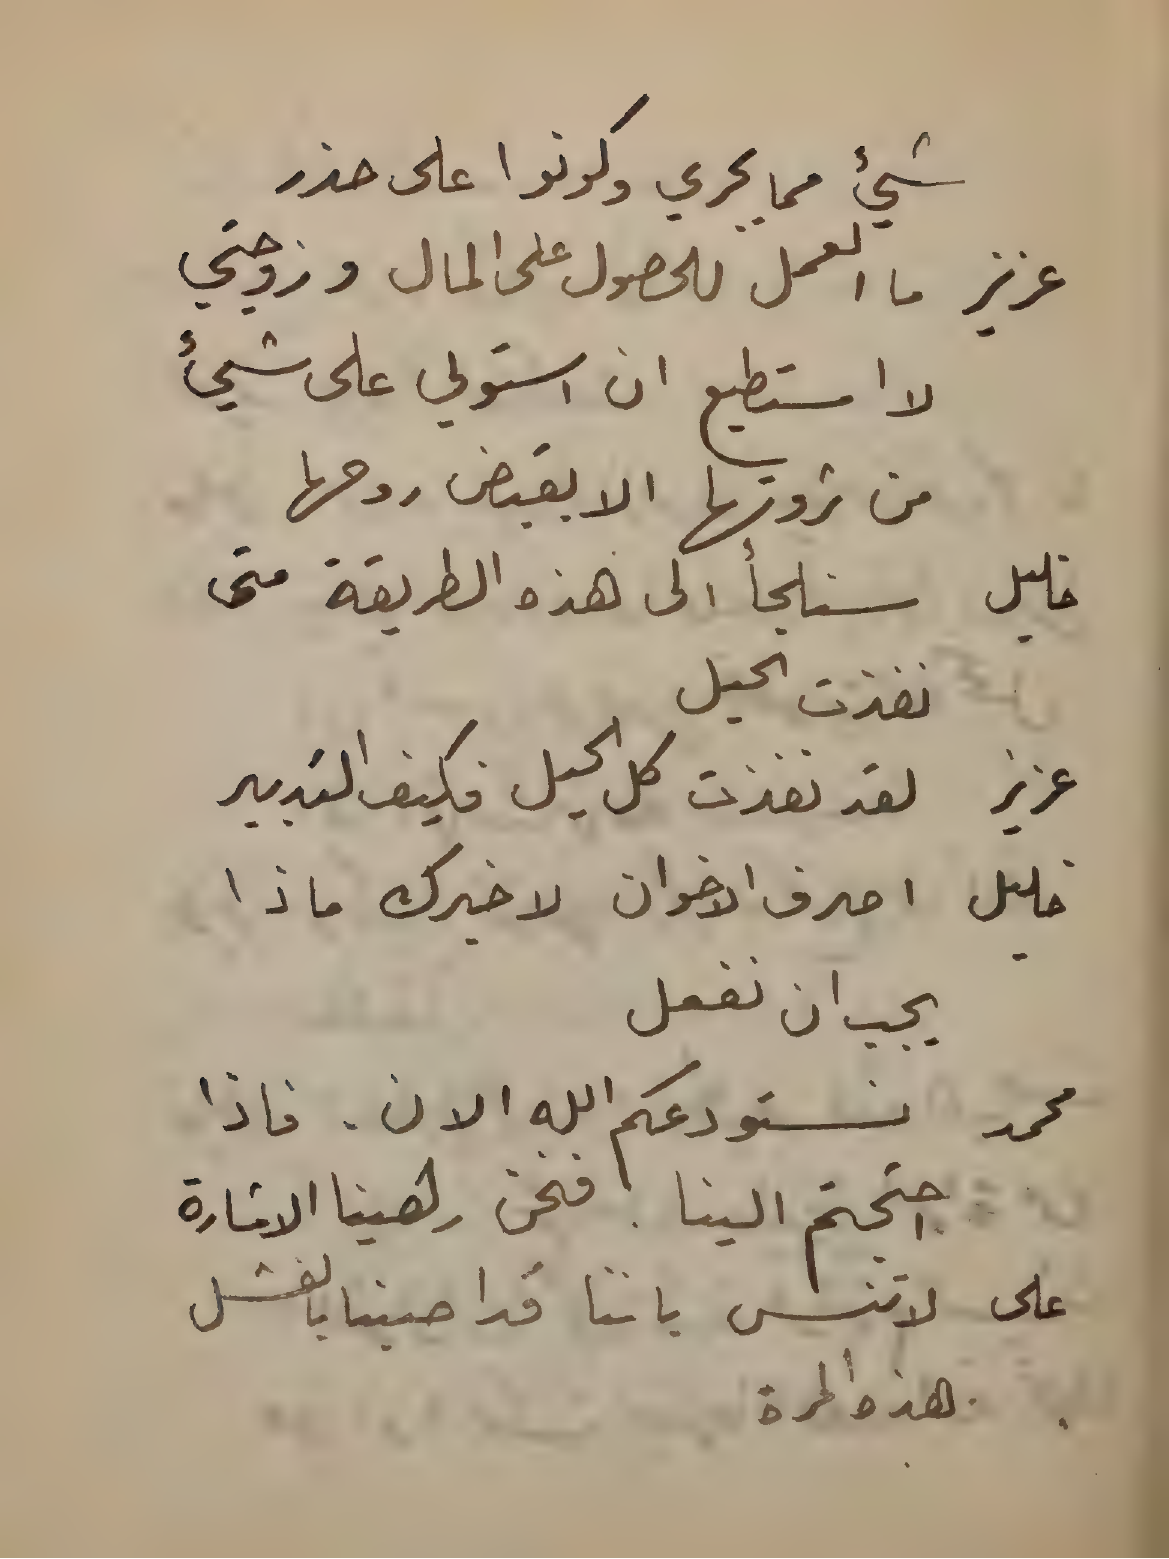 شيئ مما يجري وكونوا على حذر
عزيز ما العمل للحصول على المال وزوجتي
لا استطيع ان استولي على شيئ
من ثروتها الا بقبض روحها
خليل سنلجأ الى هذه الطريقة متى
نفذت الحيل
عزيز لقد نفذت كل الحيل فكيف التدبير
خليل اصرف الاخوان لاخبرك ماذا
يجب ان نفعل
محمد نستودعكم الله الان . فاذا
احتجتم الينا . فنحن رهينا الاشارة
على لا تنس باننا قد اصبنا بالفشل
هذه المرة